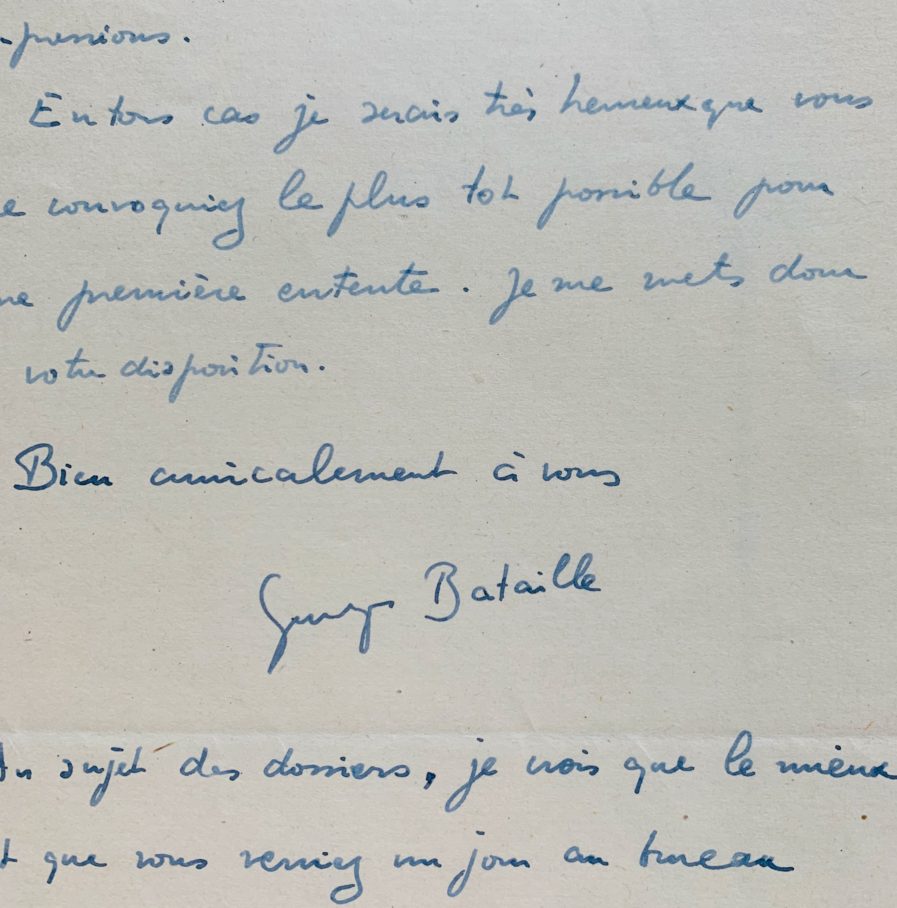 -pressions.
En tous cas je serais très heureux que vous
e convoquiez le plus tôt possible pour
ne première entente. Je me mets donc
votre disposition.
Bien amicalement à vous
Georges Bataille
Au sujet des dossiers, je crois que le mieux
t que vous veniez un jour au bureau